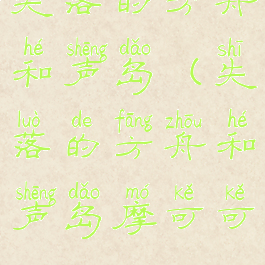 失落的方舟
hé shēng dǎo shī
和声岛（失
luò de fāng zhōu hé
落的方舟和
shēng dǎo mó kě kě
声岛摩可可